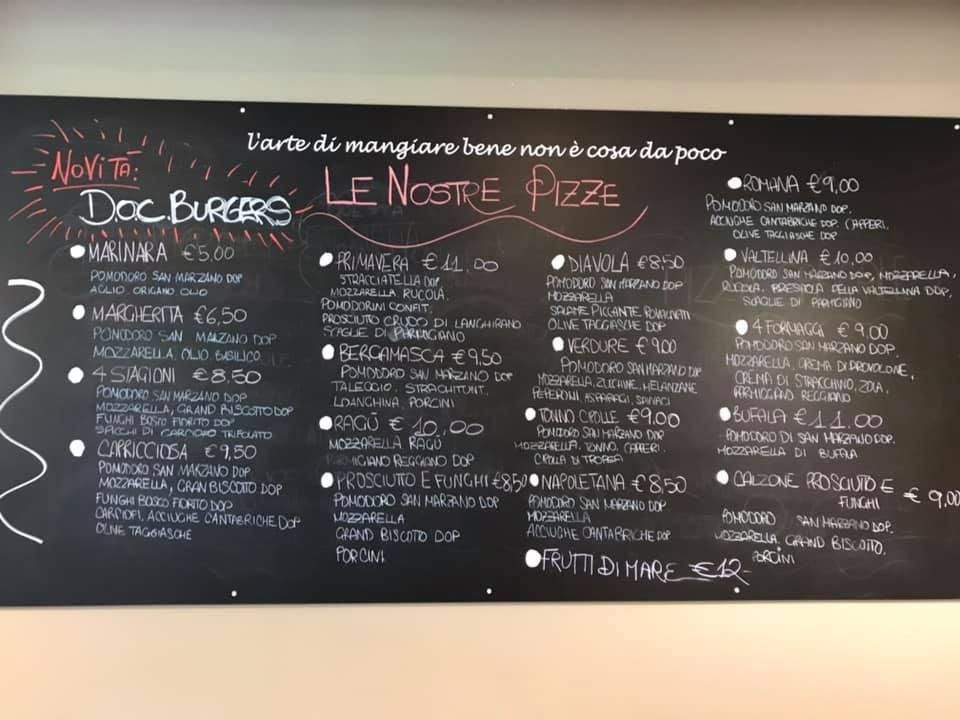 l'arte di mangiare bene non è cosa da poco
NOVITA:
D.O.C. BURGERS
LE NOSTRE PIZZE
MARINARA €5,00
POMODORO SAN MARZANO DOP
AGLIO ORIGANO OLIO
MARGHERITA €6,50
POMODORO SAN MARZANO DOP
MOZZARELLA OLIO BASILICO
4 STAGIONI €8,50
POMODORO SAN MARZANO DOP
MOZZARELLA, GRAND BISCOTTO DOP
FUNGHI BOSCO FIORITO DOP
SPICCHI DI CARCIOFO TRIFOLATO
CAPRICCIOSA €9,50
POMODORO SAN MARZANO DOP
MOZZARELLA, GRAN BISCOTTO DOP
FUNGHI BOSCO FIORITO DOP
CARCIOFI, ACCIUGHE CANTABRICHE DOP
OLIVE TAGGIASCHE
PRIMAVERA €11,00
STRACCIATELLA DOP
MOZZARELLA RUCOLA,
POMODORINI CONFIT,
PROSCIUTO CRUDO DI LANGHIRANO
SCAGLIE DI PARMIGIANO
BERGAMASCA €9,50
POMODORO SAN MARZANO DOP
TALEGGIO, STRACHITUNT,
LONGHINA, PORCINI
RAGŪ €10,00
MOZZARELLA RAGŪ
PARMIGIANO REGGIANO DOP
PROSCIUTTO E FUNGHI €8,50
POMODORO SAN MARZANO DOP
MOZZARELLA
GRAND BISCOTTO DOP
PORCINI
DIAVOLA €8,50
POMODORO SAN MARZANO DOP
MOZZARELLA
SALAME PICCANTE
OLIVE TAGGIASCHE DOP
VERDURE €9,00
POMODORO SAN MARZANO DOP
MOZZARELLA, ZUCCHINE, MELANZANE
PEPERONI, ASPARAGI, SPINACI
TONNO CIPOLLE €9,00
POMODORO SAN MARZANO DOP
MOZZARELLA, TONNO, CAPPERI,
CIPOLLA DI TROPEA
NAPOLETANA €8,50
POMODORO SAN MARZANO DOP
MOZZARELLA
ACCIUGHE CANTABRICHE DOP
FRUTTI DI MARE €12
ROMANA €9,00
POMODORO SAN MARZANO DOP,
ACCIUGHE CANTABRICHE DOP, CAPPERI,
OLIVE TAGGIASCHE DOP
VALTELLINA €10,00
POMODORO SAN MARZANO DOP, MOZZARELLA,
RUCOLA, BRESAOLA DELLA VALTELLINA DOP,
SCAGLIE DI PARMIGIANO
4 FORMAGGI €9,00
POMODORO SAN MARZANO DOP,
MOZZARELLA, CREMA DI PROVOLONE,
CREMA DI STRACCHINO, ZOLA,
PARMIGIANO REGGIANO
BUFALA €11,00
POMODORO DI SAN MARZANO DOP,
MOZZARELLA DI BUFALA
CALZONE PROSCIUTO E
FUNGHI €9,00
POMODORO SAN MARZANO DOP,
MOZZARELLA, GRAND BISCOTTO,
PORCINI